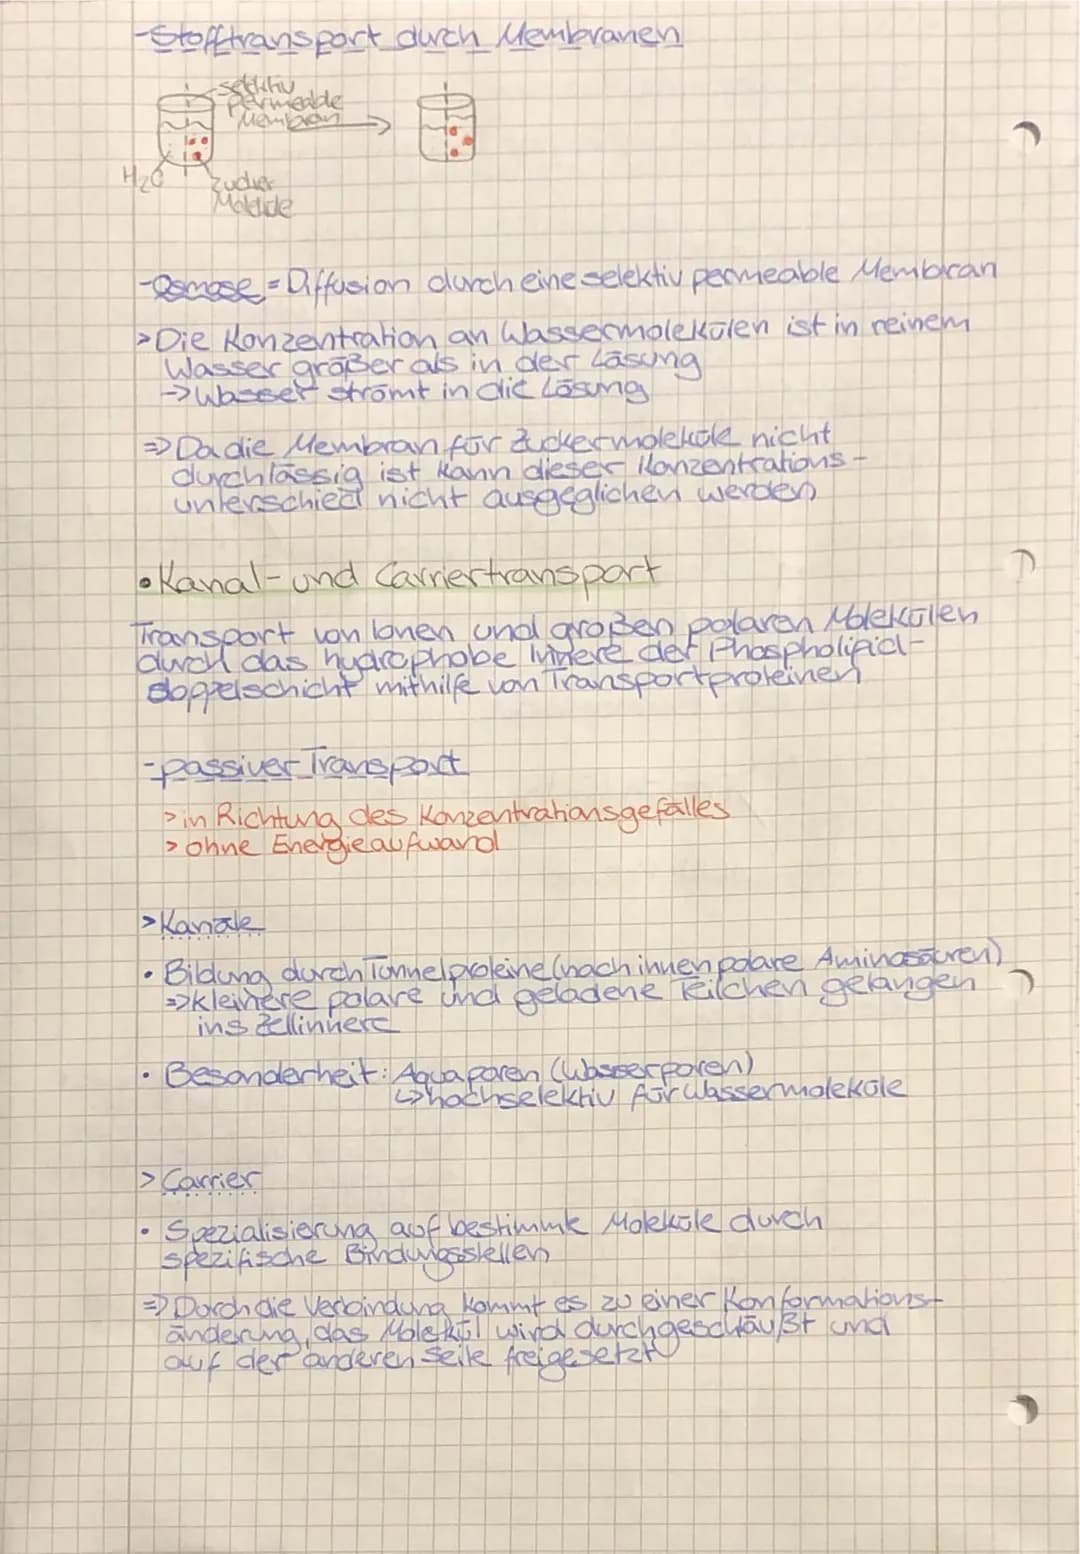 -Stofftransport durch Membranen
selektiv
permeable
Membran
H₂O
Zucker
Moleküle
-Osmose = Diffusion durch eine selektiv permeable Membran
>Die Konzentration an Wassermolekülen ist in reinem
Wasser größer als in der Lösung
->Wasser strömt in die Lösung
=>Da die Membran für Zuckermoleküle nicht
durchlässig ist kann dieser Konzentrations-
unterschied nicht ausgeglichen werden
•Kanal- und Carriertransport
Transport von Ionen und großen polaren Molekülen
durch das hydrophobe Innere der Phospholipid-
doppelschicht mithilfe von Transportproteinen
-passiver Transport
>in Richtung des Konzentrationsgefälles
>ohne Energieaufwand
>Kanäle
• Bildung durch Tunnelproteine (nach innen polare Aminosäuren)
=>kleinere polare und geladene Teilchen gelangen
ins Zellinnere
• Besonderheit: Aquaporen (Wasserporen)
↳hochselektiv für Wassermoleküle
>Carrier
• Spezialisierung auf bestimmte Moleküle durch
spezifische Bindungsstellen
=>Durch die Verbindung kommt es zu einer Konformations-
änderung, das Molekül wird durchgeschäußt und
auf der anderen Seite freigesetzt